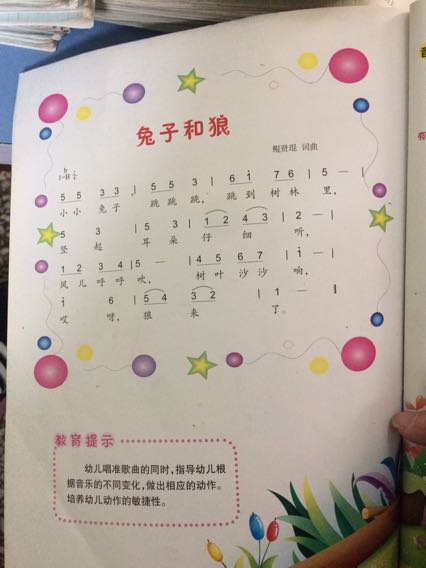 兔子和狼
鲲贤琨 词曲
5 5 3 3 | 5 5 3 | 6 i 7 6 | 5 — |
小小 兔子 跳跳跳, 跳到树林里,
5 3 | 5 3 | 1 2 4 3 | 2 — |
竖起 耳朵 仔细 听,
1 2 3 4 | 5 — | 4 5 6 7 | i — |
风儿呼呼吹, 树叶沙沙响,
i 6 | 5 4 3 2 | 1 — | 1 — ‖
哎呀, 狼来了。
教育提示
幼儿唱准歌曲的同时,指导幼儿根
据音乐的不同变化,做出相应的动作。
培养幼儿动作的敏捷性。